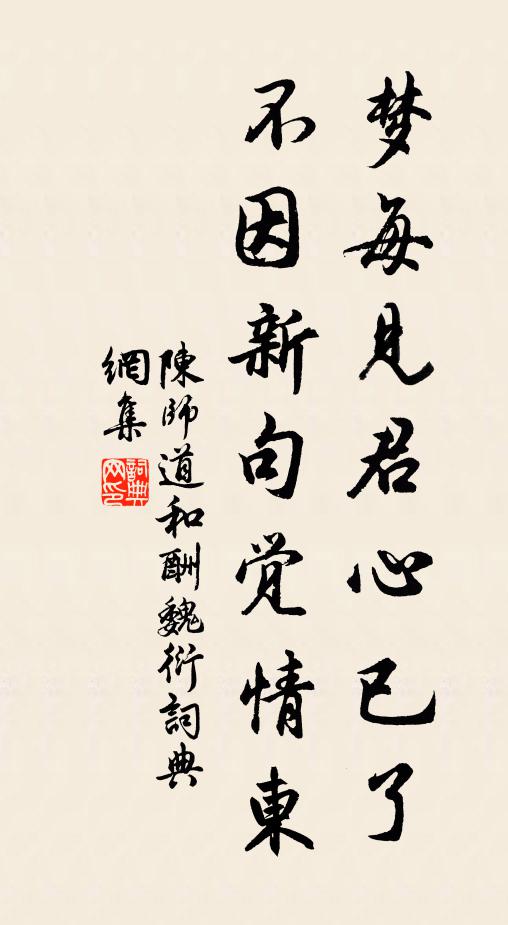 梦每見君心已了
不因新句覚情東
陳師道和酬魏衍詞典
網集
詞典
网印